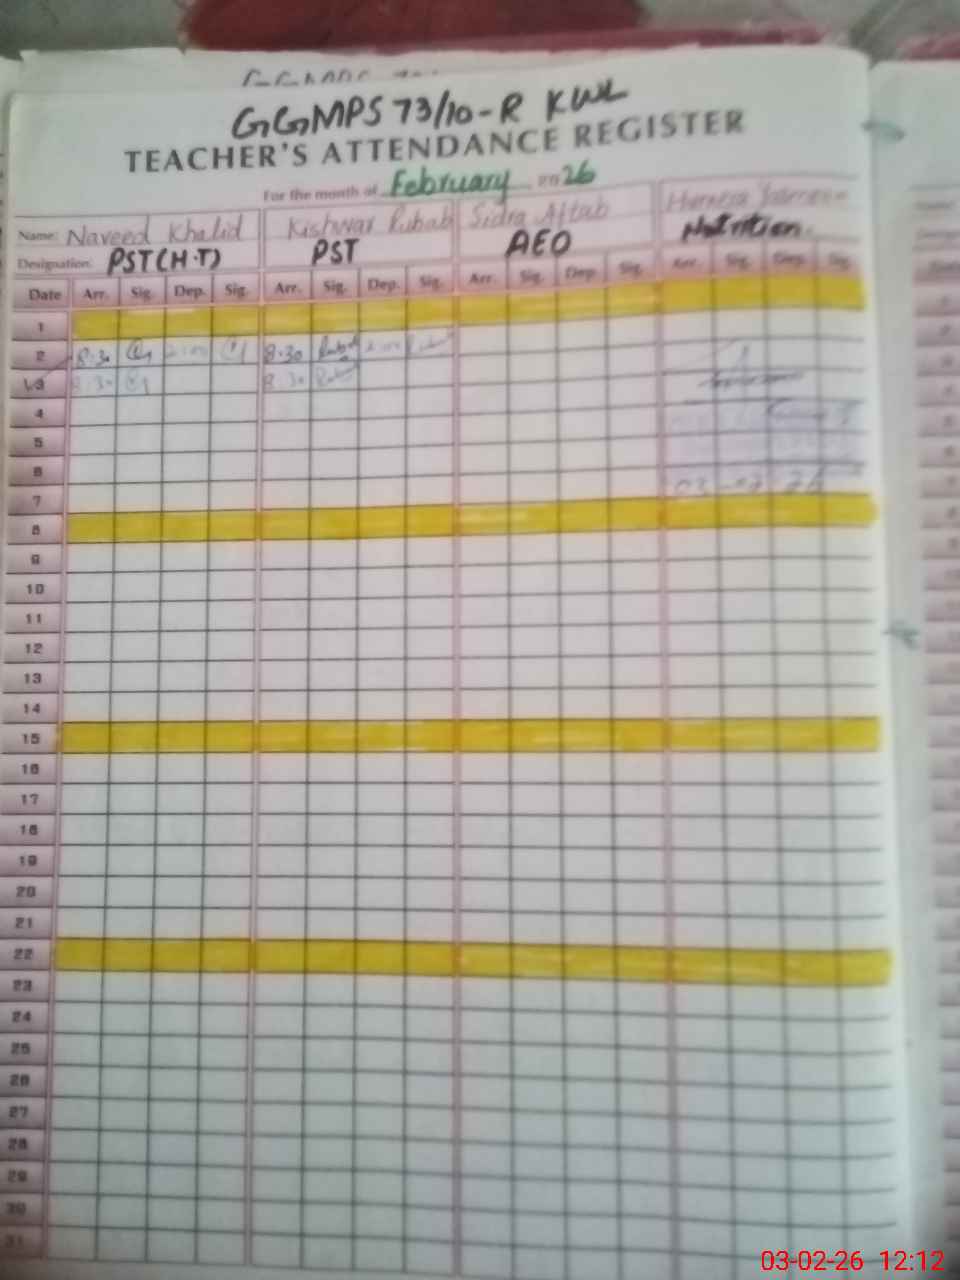 GGMPS 73/10-R KWL
TEACHER'S ATTENDANCE REGISTER
For the month of February 2026
Name: Naveed Khalid Kishwar Rubab Sidra Aftab
Designation: PST(H.T) PST AEO Nutrition.
Date Arr. Sig. Dep. Sig. Arr. Sig. Dep. Sig. Arr. Sig. Dep. Sig. Arr. Sig. Dep. Sig.
1
2 8:30 2:00 8:30 Rubab 2:00 Rubab
3 8:30 8:30 Rubab
4
5
6
7 03-02-26
8
9
10
11
12
13
14
15
16
17
18
19
20
21
22
23
24
25
26
27
28
29
30
31
03-02-26 12:12